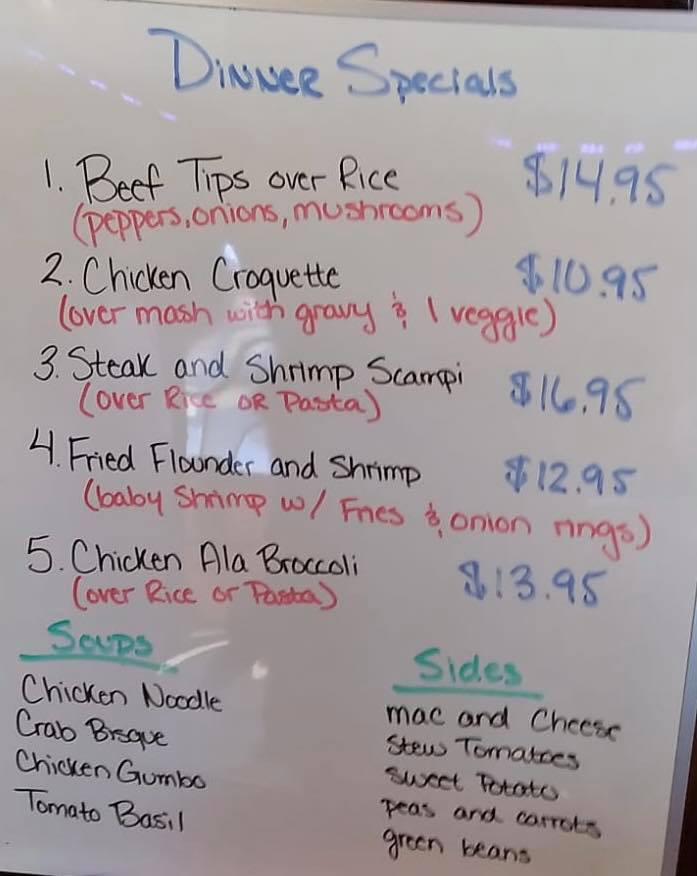 Dinner Specials
1. Beef Tips over Rice $14.95
(peppers, onions, mushrooms)
2. Chicken Croquette $10.95
(over mash with gravy & 1 veggie)
3. Steak and Shrimp Scampi $16.95
(over Rice or Pasta)
4. Fried Flounder and Shrimp $12.95
(baby Shrimp w/ Fries & onion rings)
5. Chicken Ala Broccoli $13.95
(over Rice or Pasta)
Soups
Chicken Noodle
Crab Bisque
Chicken Gumbo
Tomato Basil
Sides
mac and Cheese
Stew Tomatoes
Sweet Potato
peas and carrots
green beans